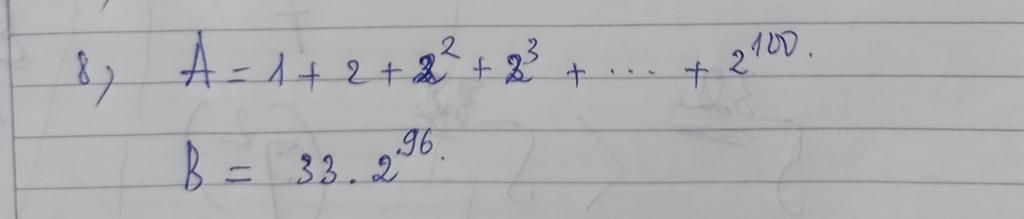 8, A = 1 + 2 + 2² + 2³ + ... + 2¹⁰⁰.
B = 33 . 2⁹⁶.